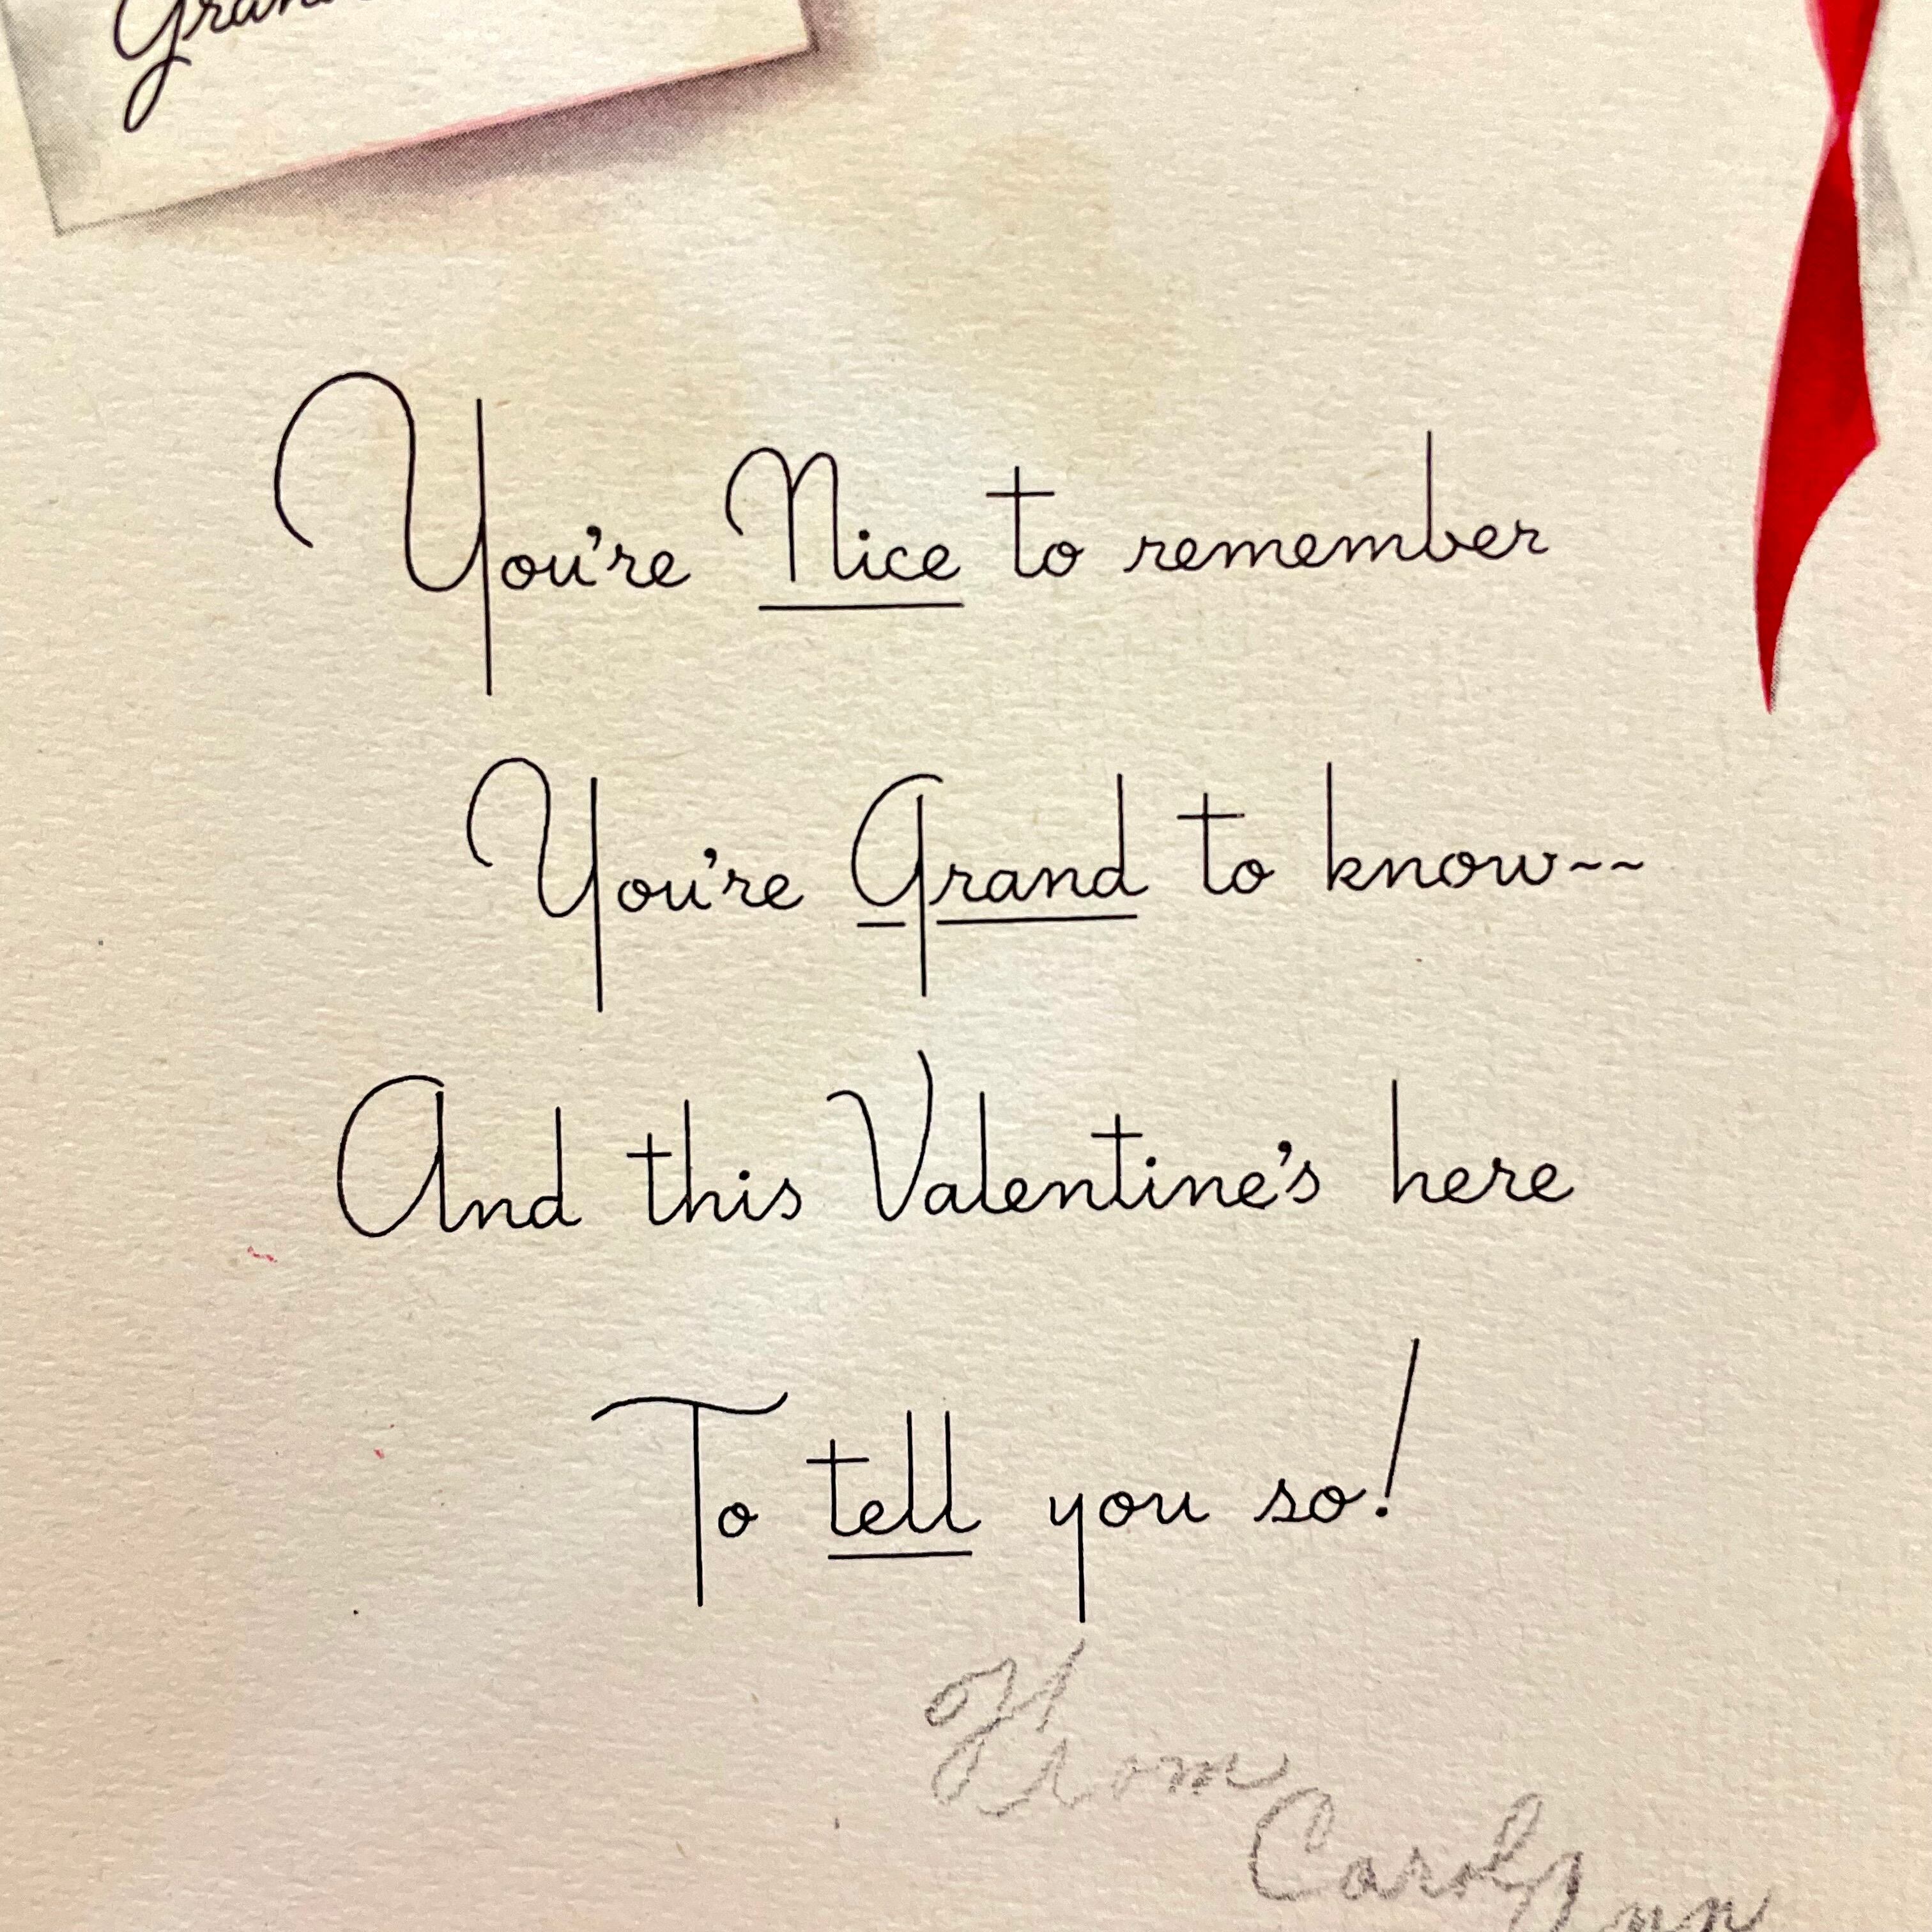 Gran
You're Nice to remember
You're Grand to know~~
And this Valentine's here
To tell you so!
From
Carol Ann